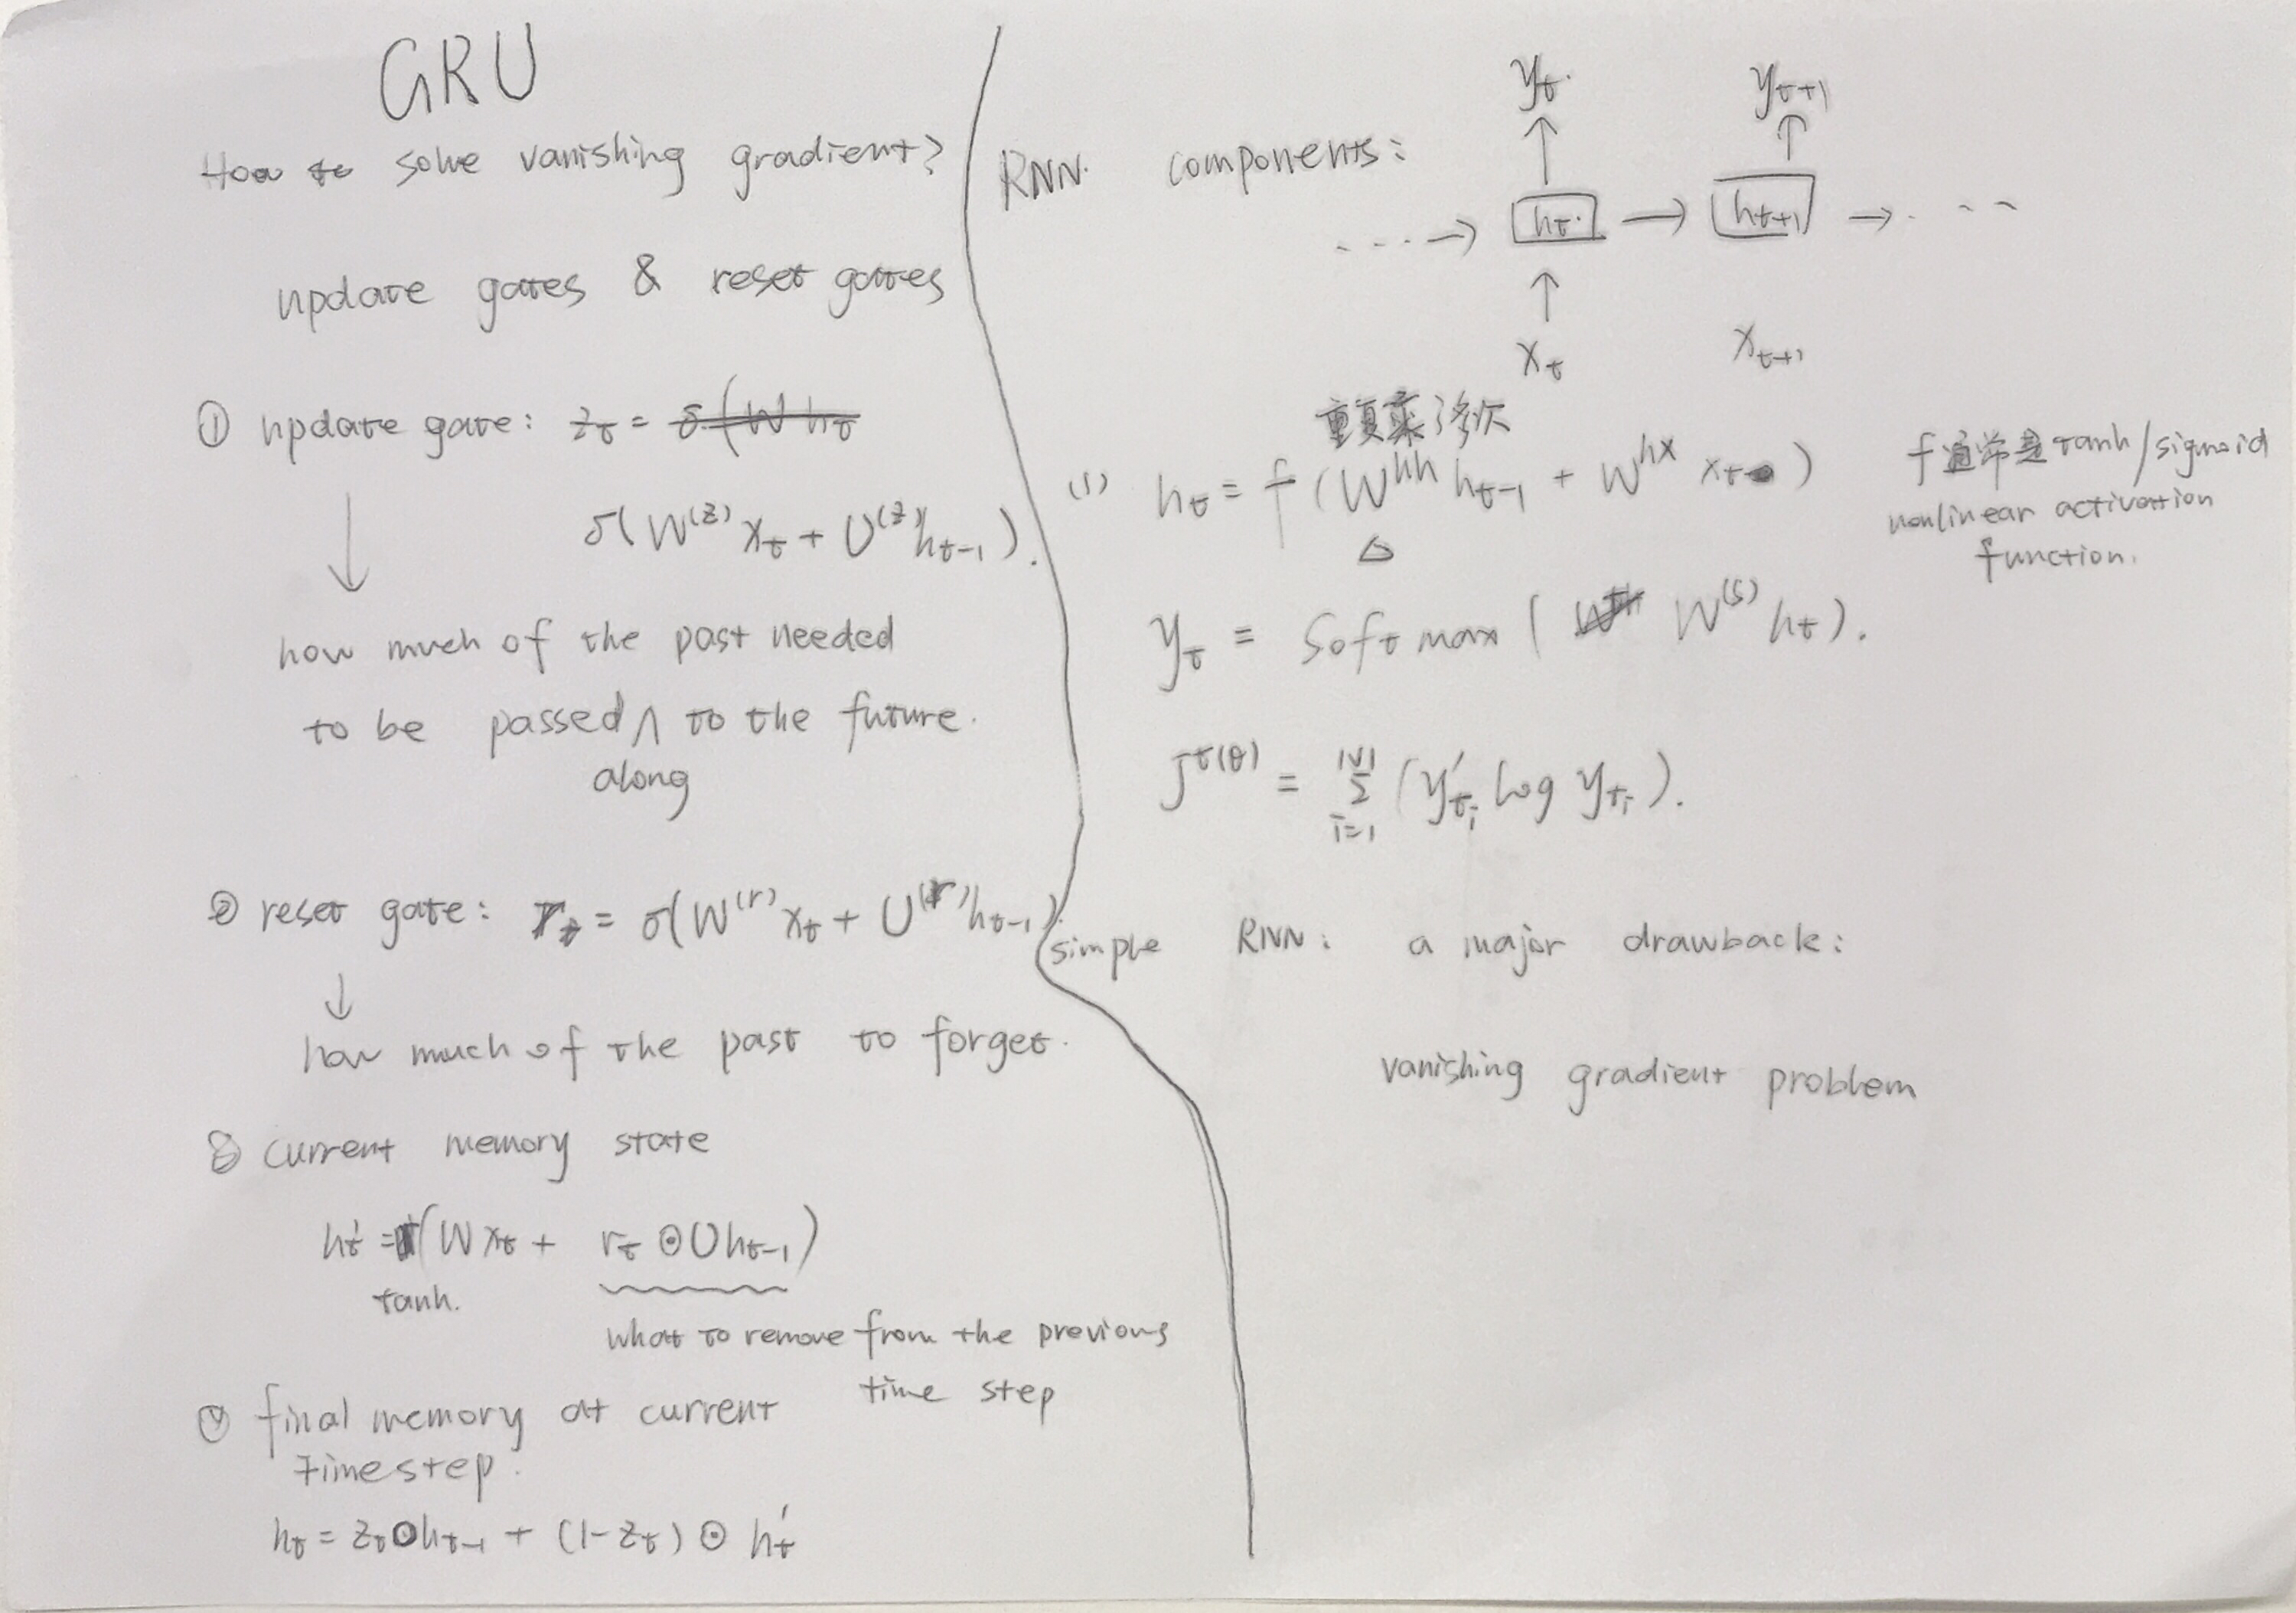 GRU
How to solve vanishing gradient?
update gates & reset gates
① update gate: z_t =
σ(W^(z) x_t + U^(z) h_t-1).
↓
how much of the past needed
to be passed ∧ to the future.
along
② reset gate: r_t = σ(W^(r) x_t + U^(r) h_t-1).
↓
how much of the past to forget.
③ current memory state
h't = (W x_t + r_t ⊙ U h_t-1)
tanh.
what to remove from the previous
time step
④ final memory at current
timestep.
h_t = z_t ⊙ h_t-1 + (1-z_t) ⊙ h't
RNN. components:
y_t. y_t+1
↑ ↑
...→ h_t. → h_t+1 → ...
↑
x_t x_t+1
重复乘了多次
(1) h_t = f (W^hh h_t-1 + W^hx x_t)
△
f通常是tanh/sigmoid
nonlinear activation
function.
y_t = Softmax ( W^(S) h_t).
J^t(θ) = |V| Σ i=1 (y't_i log y_t_i).
simple RNN: a major drawback:
vanishing gradient problem